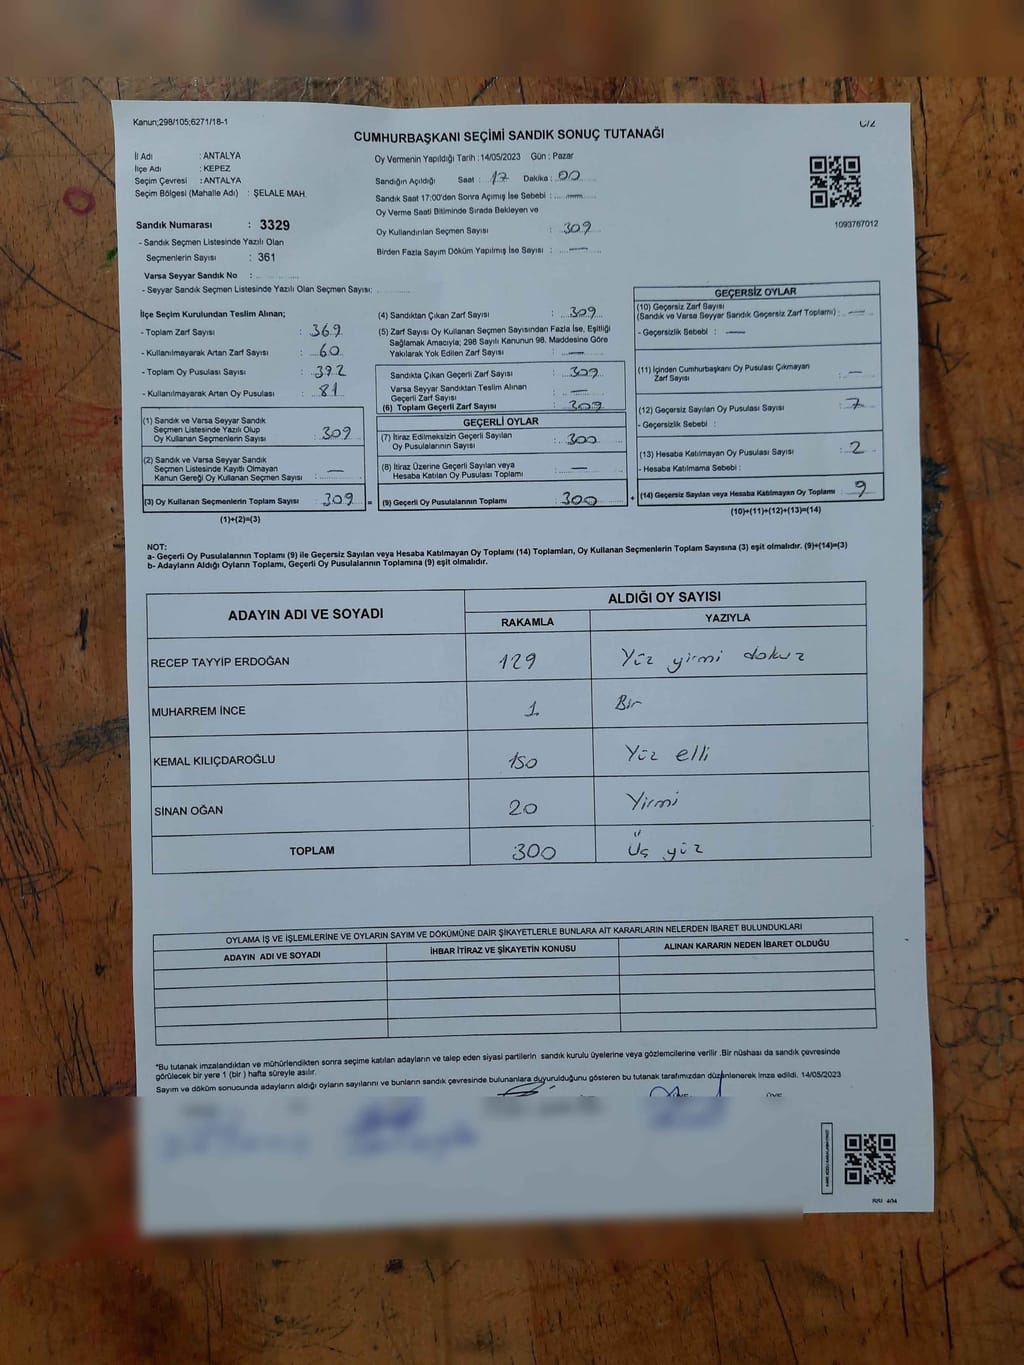 Kanun;298/105;6271/18-1
CUMHURBAŞKANI SEÇİMİ SANDIK SONUÇ TUTANAĞI
İl Adı : ANTALYA
İlçe Adı : KEPEZ
Seçim Çevresi : ANTALYA
Seçim Bölgesi (Mahalle Adı) : ŞELALE MAH.
Sandık Numarası : 3329
- Sandık Seçmen Listesinde Yazılı Olan
Seçmenlerin Sayısı : 361
Varsa Seyyar Sandık No :
- Seyyar Sandık Seçmen Listesinde Yazılı Olan Seçmen Sayısı:
Oy Vermenin Yapıldığı Tarih : 14/05/2023 Gün : Pazar
Sandığın Açıldığı Saat : 17 Dakika : 00
Sandık Saat 17:00'den Sonra Açımış İse Sebebi : —
Oy Verme Saati Bitiminde Sırada Bekleyen ve
Oy Kullandırılan Seçmen Sayısı : 309
Birden Fazla Sayım Döküm Yapılmış İse Sayısı : —
1093767012
İlçe Seçim Kurulundan Teslim Alınan;
- Toplam Zarf Sayısı : 369
- Kullanılmayarak Artan Zarf Sayısı : 60
- Toplam Oy Pusulası Sayısı : 392
- Kullanılmayarak Artan Oy Pusulası : 81
(1) Sandık ve Varsa Seyyar Sandık
Seçmen Listesinde Yazılı Olup
Oy Kullanan Seçmenlerin Sayısı : 309
(2) Sandık ve Varsa Seyyar Sandık
Seçmen Listesinde Kayıtlı Olmayan
Kanun Gereği Oy Kullanan Seçmen Sayısı : —
(3) Oy Kullanan Seçmenlerin Toplam Sayısı : 309 =
(1)+(2)=(3)
(4) Sandıktan Çıkan Zarf Sayısı : 309
(5) Zarf Sayısı Oy Kullanan Seçmen Sayısından Fazla İse, Eşitliği
Sağlamak Amacıyla; 298 Sayılı Kanunun 98. Maddesine Göre
Yakılarak Yok Edilen Zarf Sayısı : —
Sandıkta Çıkan Geçerli Zarf Sayısı : 309
Varsa Seyyar Sandıktan Teslim Alınan
Geçerli Zarf Sayısı : —
(6) Toplam Geçerli Zarf Sayısı : 309
GEÇERLİ OYLAR
(7) İtiraz Edilmeksizin Geçerli Sayılan
Oy Pusulalarının Sayısı : 300
(8) İtiraz Üzerine Geçerli Sayılan veya
Hesaba Katılan Oy Pusulası Toplamı : —
(9) Geçerli Oy Pusulalarının Toplamı : 300 +
GEÇERSİZ OYLAR
(10) Geçersiz Zarf Sayısı
(Sandık ve Varsa Seyyar Sandık Geçersiz Zarf Toplamı) : —
- Geçersizlik Sebebi : —
(11) İçinden Cumhurbaşkanı Oy Pusulası Çıkmayan
Zarf Sayısı : —
(12) Geçersiz Sayılan Oy Pusulası Sayısı : 7
- Geçersizlik Sebebi :
(13) Hesaba Katılmayan Oy Pusulası Sayısı : 2
- Hesaba Katılmama Sebebi :
(14) Geçersiz Sayılan veya Hesaba Katılmayan Oy Toplamı : 9
(10)+(11)+(12)+(13)=(14)
NOT:
a- Geçerli Oy Pusulalarının Toplamı (9) ile Geçersiz Sayılan veya Hesaba Katılmayan Oy Toplamı (14) Toplamları, Oy Kullanan Seçmenlerin Toplam Sayısına (3) eşit olmalıdır. (9)+(14)=(3)
b- Adayların Aldığı Oyların Toplamı, Geçerli Oy Pusulalarının Toplamına (9) eşit olmalıdır.
ADAYIN ADI VE SOYADI ALDIĞI OY SAYISI
RAKAMLA YAZIYLA
RECEP TAYYİP ERDOĞAN 129 Yüz yirmi dokuz
MUHARREM İNCE 1 Bir
KEMAL KILIÇDAROĞLU 150 Yüz elli
SİNAN OĞAN 20 Yirmi
TOPLAM 300 Üç yüz
OYLAMA İŞ VE İŞLEMLERİNE VE OYLARIN SAYIM VE DÖKÜMÜNE DAİR ŞİKAYETLERLE BUNLARA AİT KARARLARIN NELERDEN İBARET BULUNDUKLARI
ADAYIN ADI VE SOYADI İHBAR İTİRAZ VE ŞİKAYETİN KONUSU ALINAN KARARIN NEDEN İBARET OLDUĞU
*Bu tutanak imzalandıktan ve mühürlendikten sonra seçime katılan adayların ve talep eden siyasi partilerin sandık kurulu üyelerine veya gözlemcilerine verilir .Bir nüshası da sandık çevresinde
görülecek bir yere 1 (bir ) hafta süreyle asılır.
Sayım ve döküm sonucunda adayların aldığı oyların sayılarını ve bunların sandık çevresinde bulunanlara duyurulduğunu gösteren bu tutanak tarafımızdan düzenlenerek imza edildi. 14/05/2023